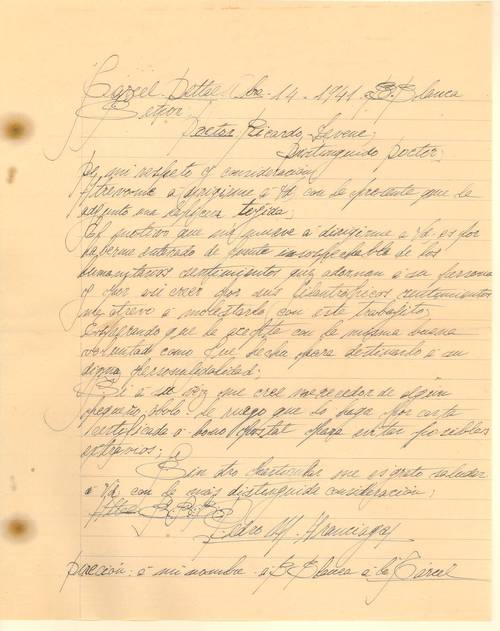 Carcel Dctbre 14-1941 B. Blanca
Señor
Doctor Ricardo Levene;
Distinguido Doctor;
De mi respeto y consideración
Atrevome a dirigirme a Vd con la presente que le
adjunto una tejida;
El motivo que me mueve a dirigirme a Vd es por
haberme enterado de gente insospechable de los
humanitarios sentimientos que adornan a su persona
y por asi creer por sus filantrópicos sentimientos
me atrevo a molestarlo con este trabajito,
Esperando que la acepte con la misma buena
voluntad como fue hecha para destinarlo a su
digna personalidad;
Si a su vez me cree merecedor de algun
pequeño óbolo le ruego que lo haga por carta
certificada o bono postal para evitar posibles
extravios;
Sin otro particular me es grato saludar
a Vd con la más distinguida consideración;
Pedro M.
Dirección: a mi nombre a B Blanca a la Cárcel